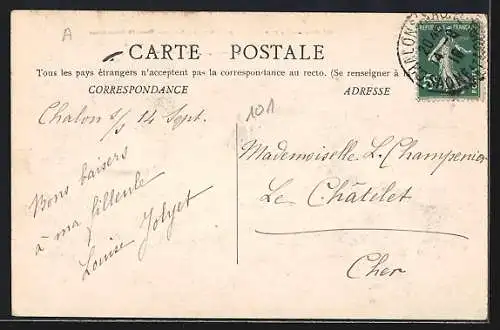 A
CARTE POSTALE
Tous les pays étrangers n'acceptent pas la correspondance au recto. (Se renseigner à
CORRESPONDANCE
ADRESSE
101
Chalon s/s 14 Sept.
Bons baisers
à ma filleule
Louise Jolyet
Mademoiselle L. Champenier
Le Châtelet
Cher